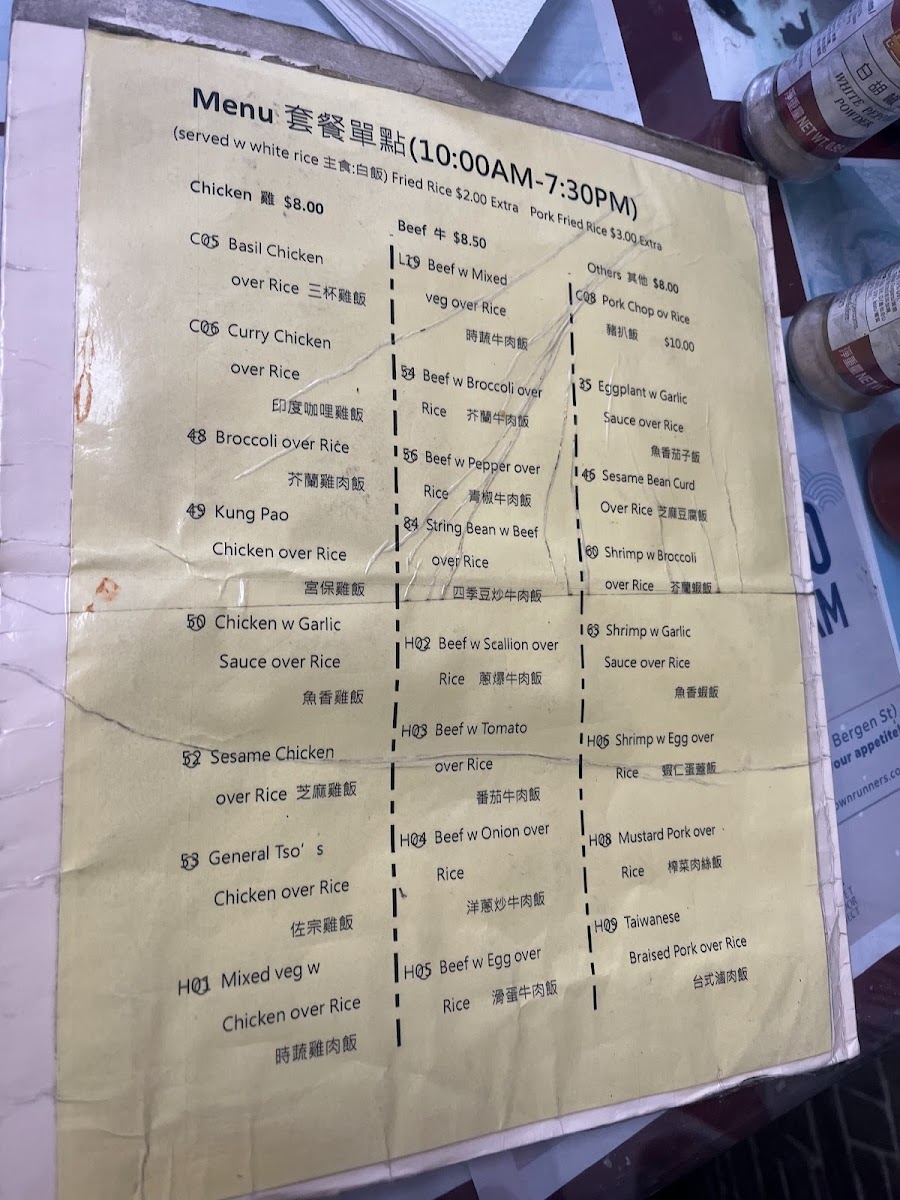 Menu 套餐單點(10:00AM-7:30PM)
(served w white rice 主食:白飯) Fried Rice $2.00 Extra Pork Fried Rice $3.00 Extra
Chicken 雞 $8.00
C05 Basil Chicken
over Rice 三杯雞飯
C06 Curry Chicken
over Rice
印度咖哩雞飯
48 Broccoli over Rice
芥蘭雞肉飯
49 Kung Pao
Chicken over Rice
宮保雞飯
50 Chicken w Garlic
Sauce over Rice
魚香雞飯
52 Sesame Chicken
over Rice 芝麻雞飯
53 General Tso's
Chicken over Rice
佐宗雞飯
H01 Mixed veg w
Chicken over Rice
時蔬雞肉飯
Beef 牛 $8.50
L19 Beef w Mixed
veg over Rice
時蔬牛肉飯
54 Beef w Broccoli over
Rice 芥蘭牛肉飯
56 Beef w Pepper over
Rice 青椒牛肉飯
84 String Bean w Beef
over Rice
四季豆炒牛肉飯
H02 Beef w Scallion over
Rice 蔥爆牛肉飯
H03 Beef w Tomato
over Rice
番茄牛肉飯
H04 Beef w Onion over
Rice
洋蔥炒牛肉飯
H05 Beef w Egg over
Rice 滑蛋牛肉飯
Others 其他 $8.00
C08 Pork Chop ov Rice
豬扒飯 $10.00
35 Eggplant w Garlic
Sauce over Rice
魚香茄子飯
46 Sesame Bean Curd
Over Rice 芝麻豆腐飯
60 Shrimp w Broccoli
over Rice 芥蘭蝦飯
63 Shrimp w Garlic
Sauce over Rice
魚香蝦飯
H06 Shrimp w Egg over
Rice 蝦仁蛋蓋飯
H08 Mustard Pork over
Rice 榨菜肉絲飯
H09 Taiwanese
Braised Pork over Rice
台式滷肉飯
WHITE PEPPER
POWDER
NET WT.
Bergen St)
our appetite!